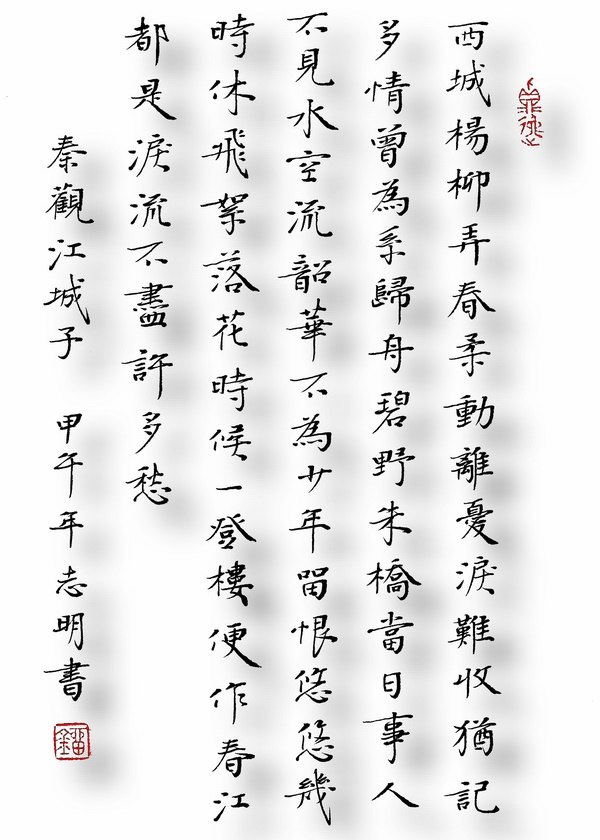 西城楊柳弄春柔動離憂淚難收猶記
多情曾為系歸舟碧野朱橋當日事人
不見水空流韶華不為少年留恨悠悠幾
時休飛絮落花時候一登樓便作春江
都是淚流不盡許多愁
秦觀江城子 甲午年志明書